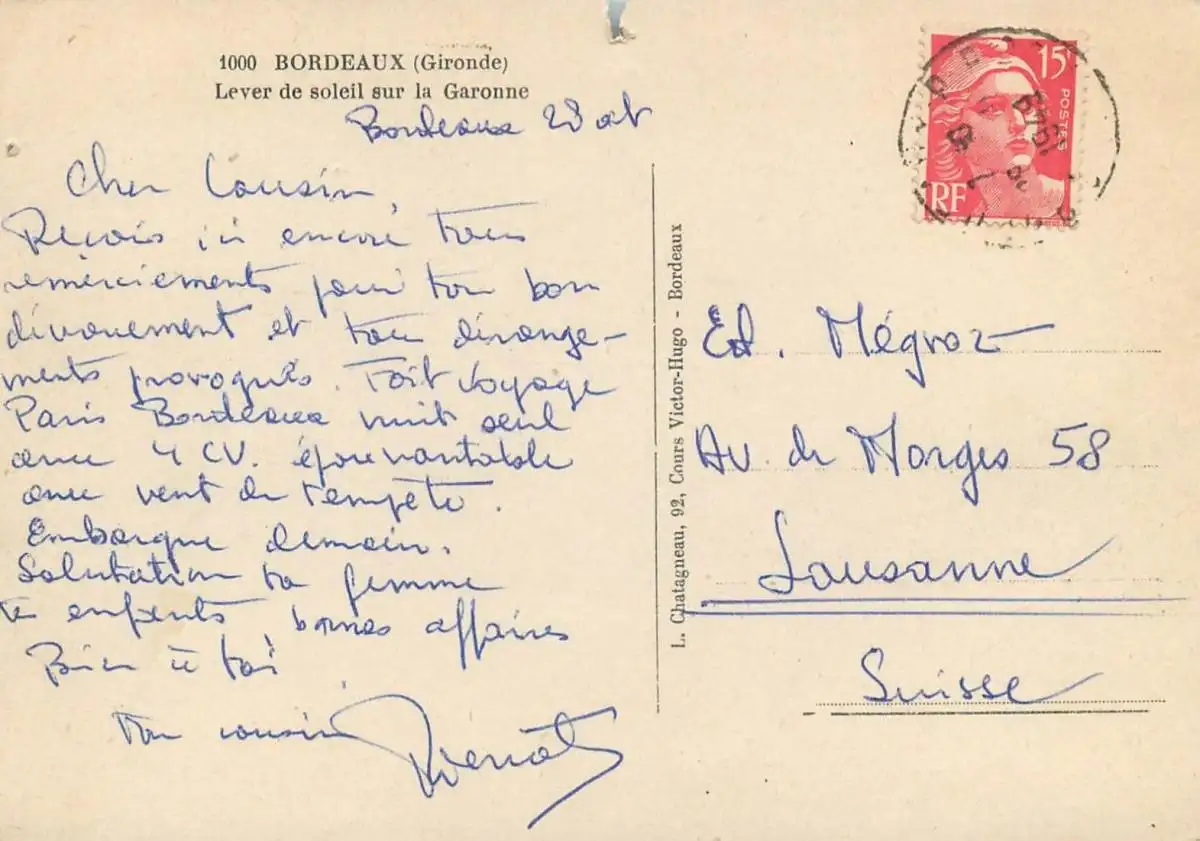 1000 BORDEAUX (Gironde)
Lever de soleil sur la Garonne
Bordeaux 28 oct
Cher Cousin,
Reçois ici encore tous
remerciements pour ton bon
dévouement et tous dérange-
ments provoqués. Fait voyage
Paris Bordeaux nuit seul
avec 4 CV. épouvantable
avec vent de tempête.
Embarque demain.
Salutation ta femme
te enfants, bonnes affaires
Bien à toi
Ton cousin
L. Chatagneau, 92, Cours Victor-Hugo - Bordeaux
15F
POSTES
RF
1949
Ed. Mégroz
Av. de Morges 58
Lausanne
Suisse